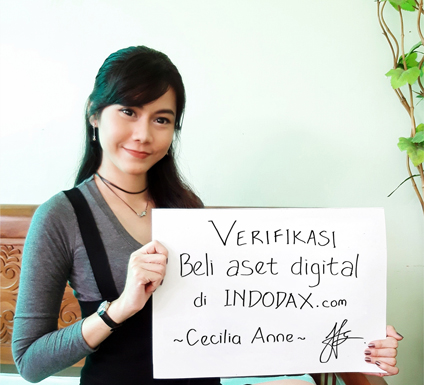 VERIFIKASI
Beli aset digital
di INDODAX.com
~Cecilia Anne~